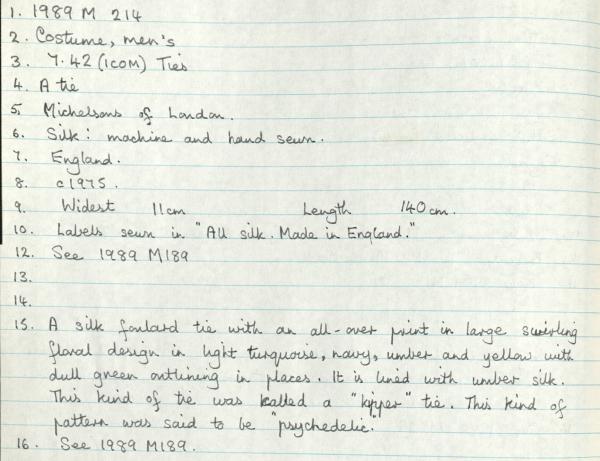 1. 1989 M 214
2. Costume, men's
3. 7.42 (ICOM) Ties
4. A tie
5. Michelsons of London.
6. Silk: machine and hand sewn.
7. England.
8. c1975.
9. Widest 11cm Length 140 cm.
10. Labels sewn in "All silk. Made in England."
12. See 1989 M189
13.
14.
15. A silk foulard tie with an all-over print in large swirling
floral design in light turquoise, navy, umber and yellow with
dull green outlining in places. It is lined with umber silk.
This kind of tie was called a "kipper" tie. This kind of
pattern was said to be "psychedelic."
16. See 1989 M189.